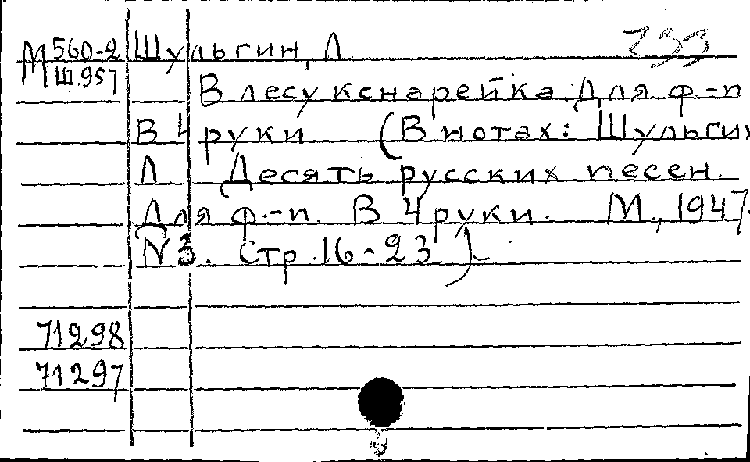 М 560-2 Шульгин, Л 733
Ш.957
В лесу кснарейка. Для ф-п
В 4 руки (В нотах: Шульгин
Л Десять русских песен.
Для ф-п. В 4 руки. М., 1947.
N3. Стр. 16-23).
71298
71297